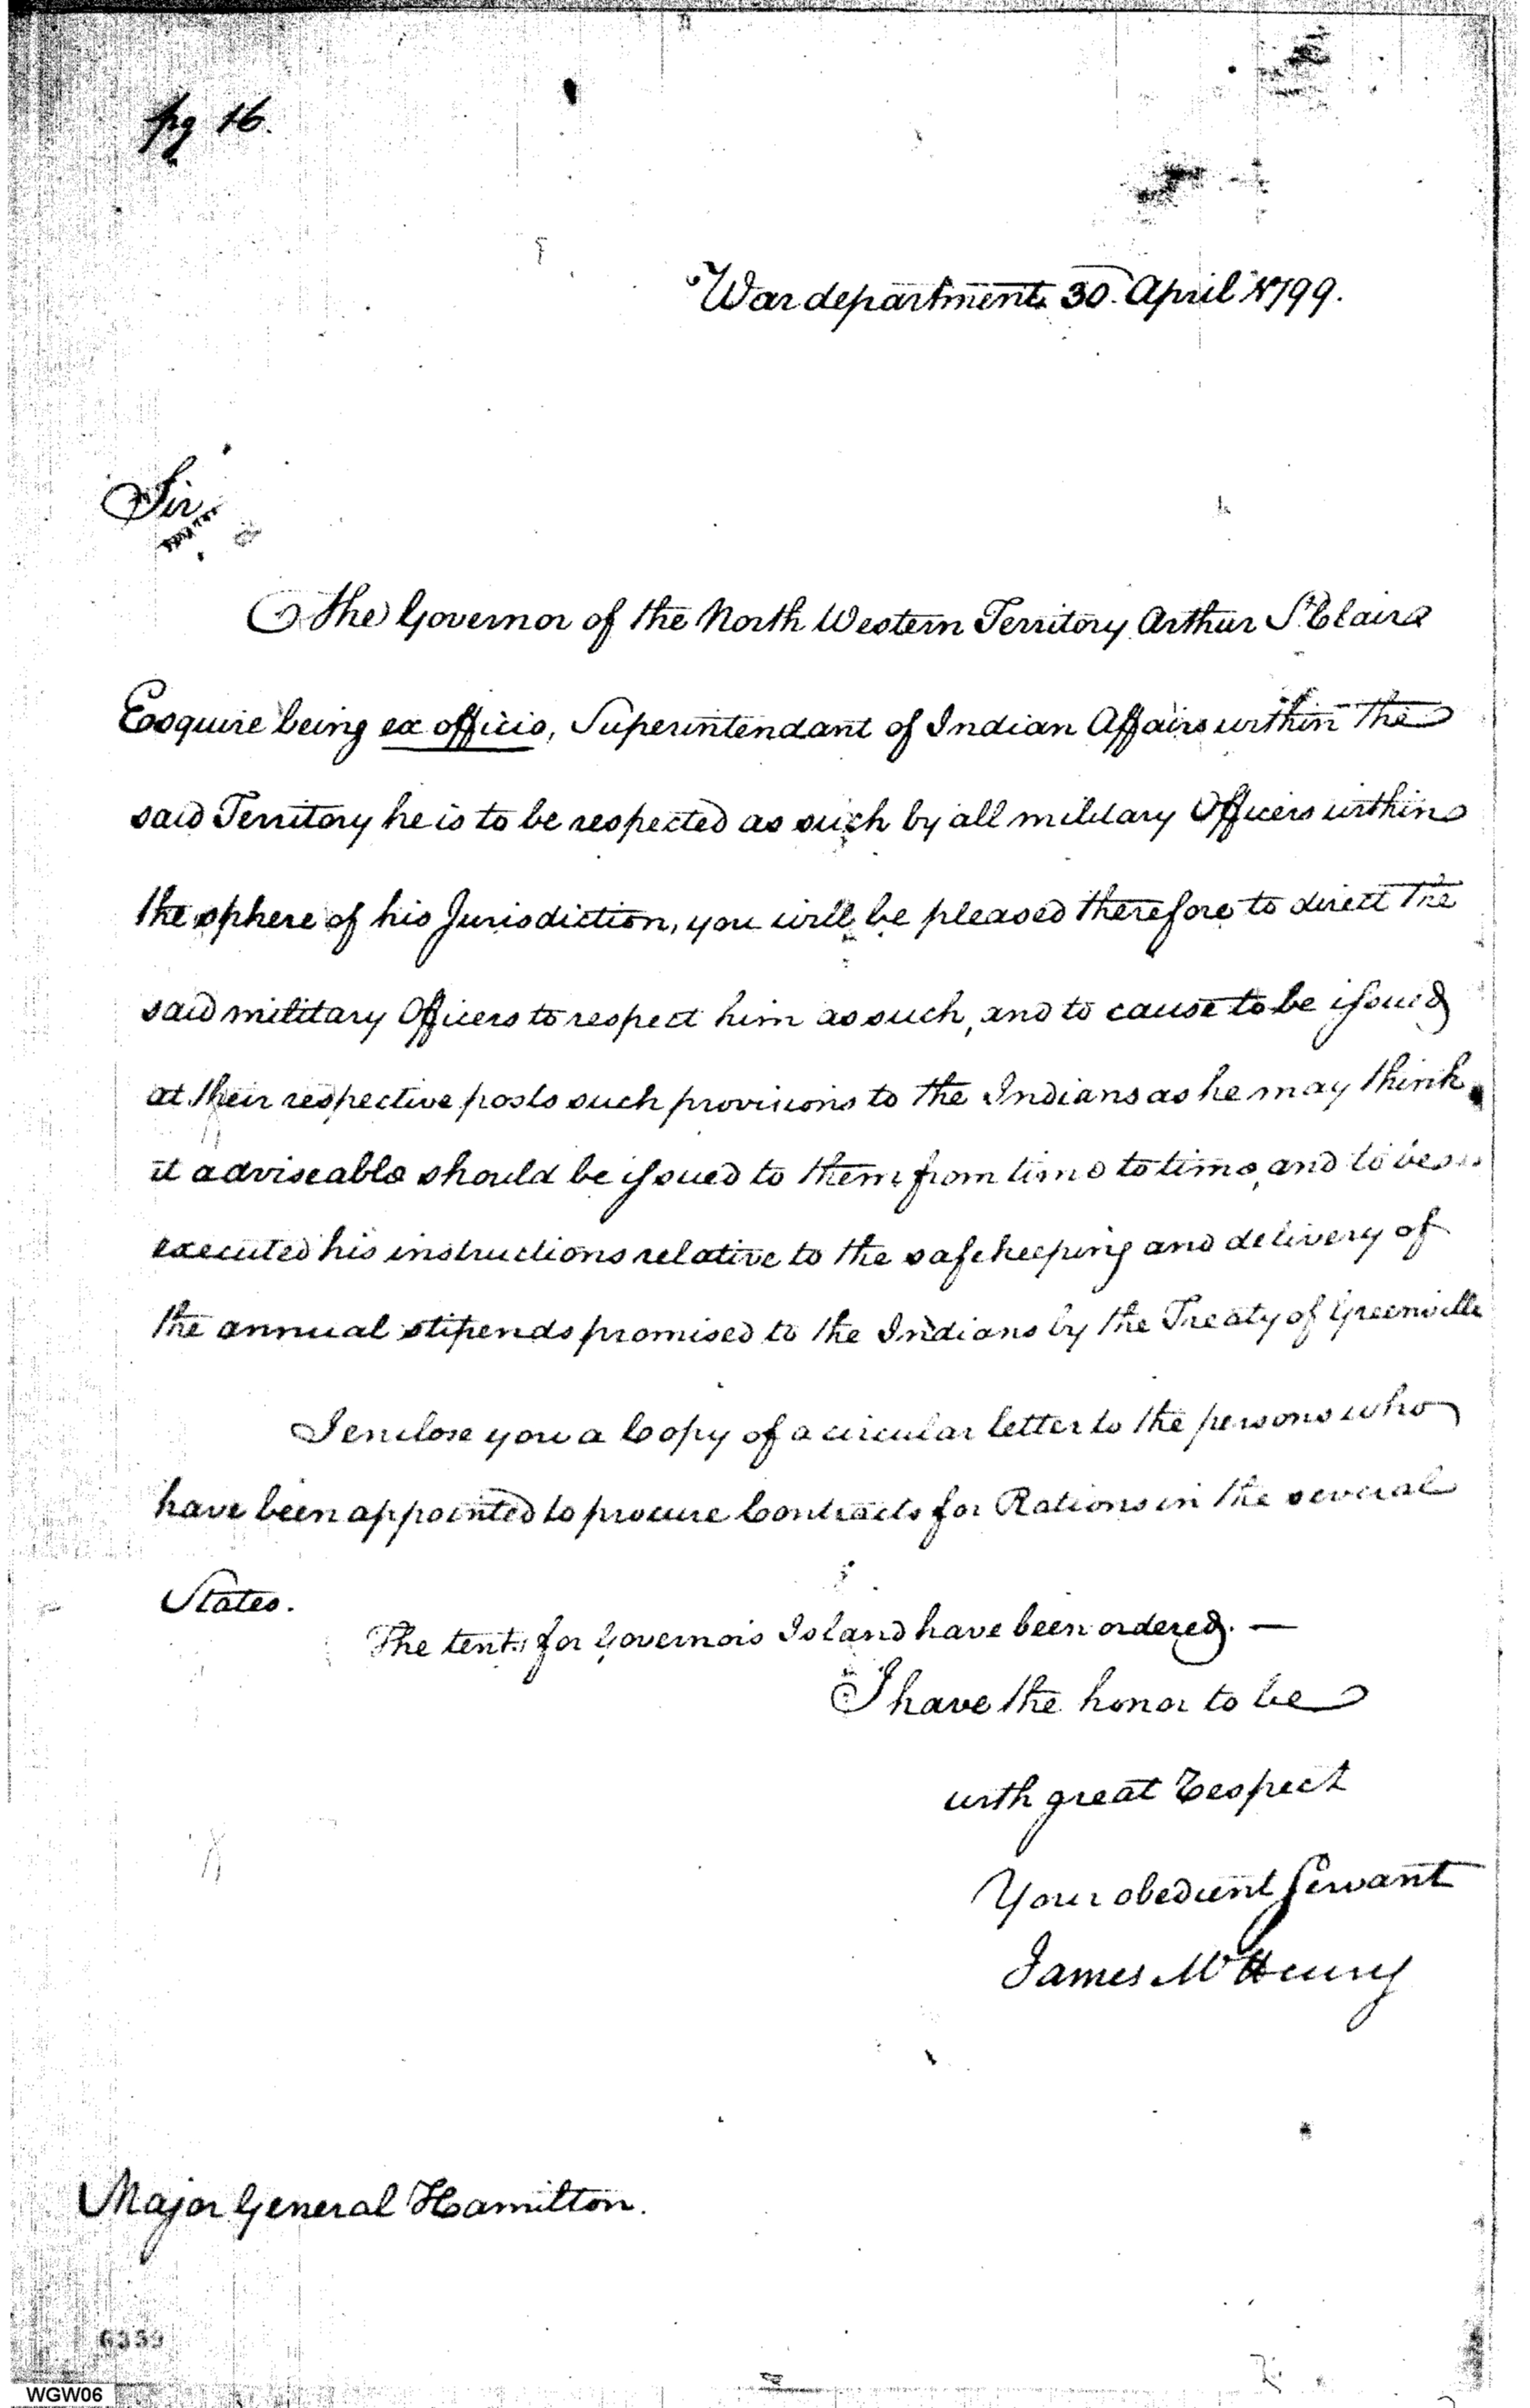 pg 16.
War department 30. April 1799.
Sir,
The Governor of the North Western Territory Arthur St. Clair
Esquire being ex officio, Superintendant of Indian Affairs within the
said Territory he is to be respected as such by all military Officers within
the sphere of his Jurisdiction, you will be pleased therefore to direct the
said military Officers to respect him as such, and to cause to be issued
at their respective posts such provisions to the Indians as he may think
it adviseable should be issued to them from time to time, and to be
executed his instructions relative to the safe keeping and delivery of
the annual stipends promised to the Indians by the Treaty of Greenville
I enclose you a Copy of a circular letter to the persons who
have been appointed to procure Contracts for Rations in the several
States.
The tents for Governors Island have been ordered. —
I have the honor to be
with great respect
Your obedient Servant
James McHenry
Major General Hamilton.
6339
WGW06